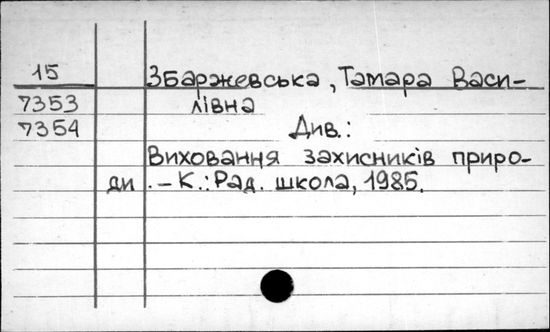 15 Збаржевська, Тамара Васи-
7353 лівна
7354 Див.:
Виховання захисників приро-
ди. – К.: Рад. школа, 1985.